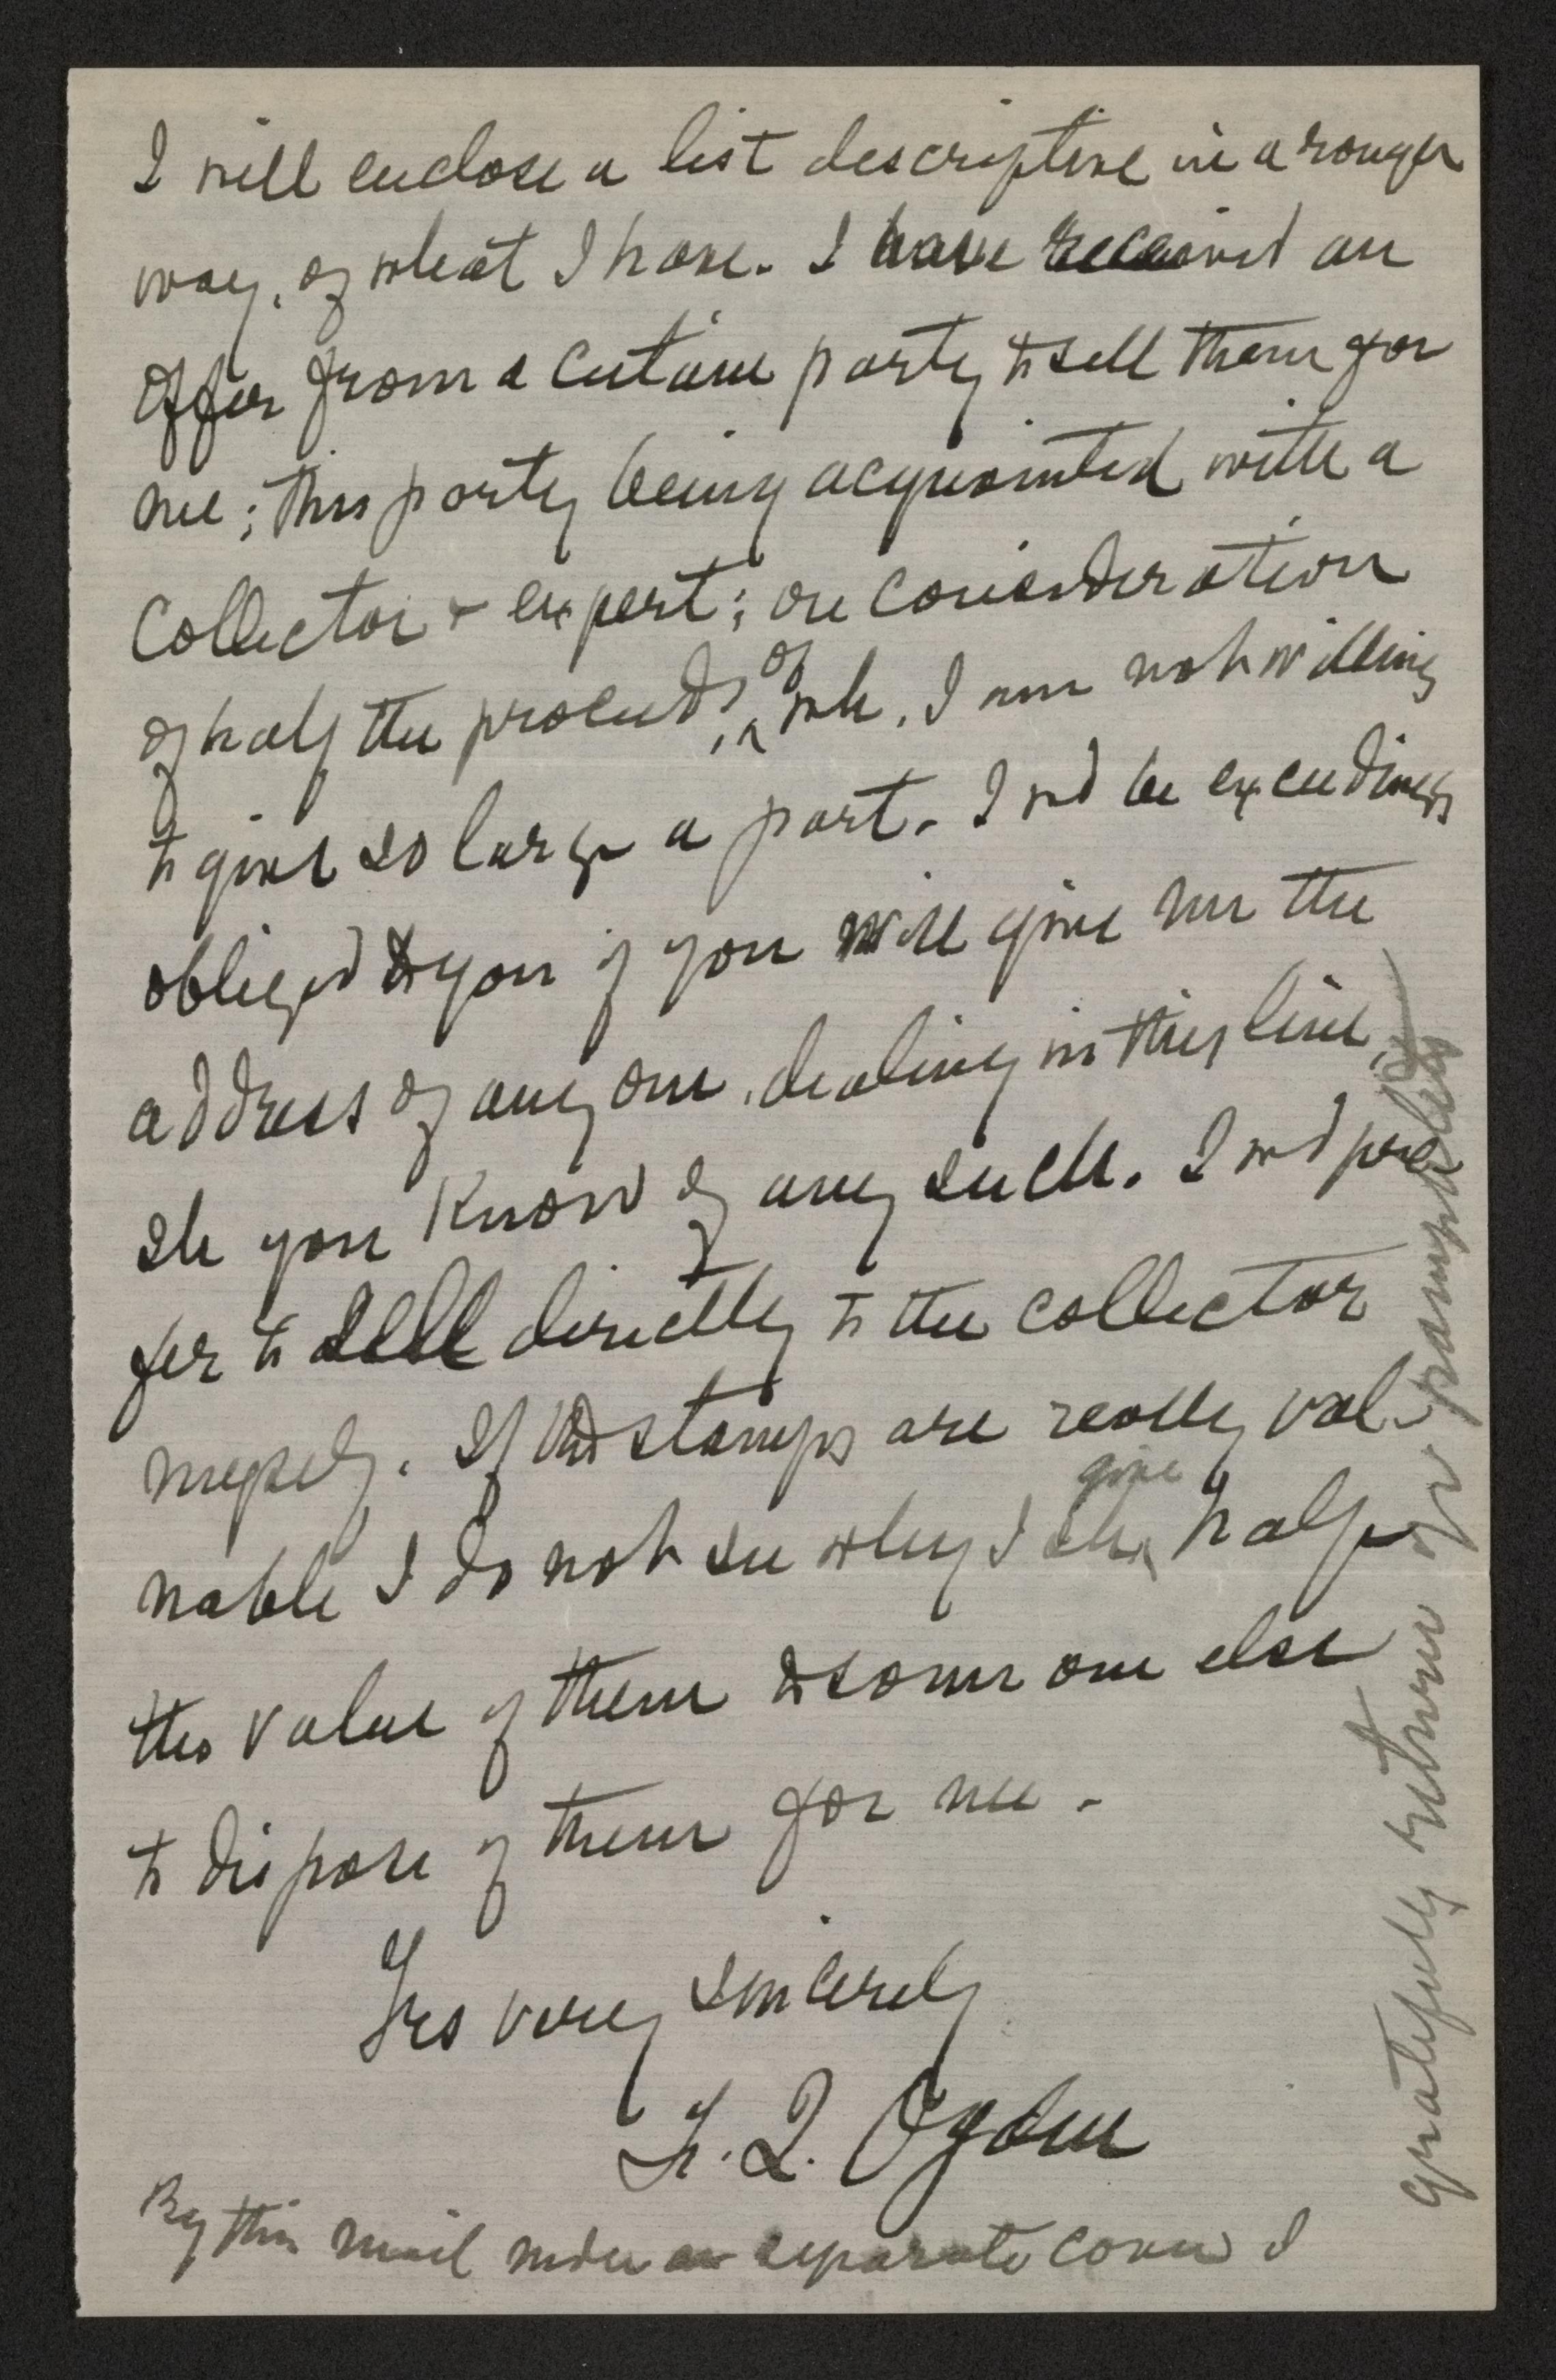 I will enclose a list descriptive in a rough
way, of what I have. I have received an
offer from a certain party to sell them for
me; this party being acquainted with a
collector & expert; on consideration
of half the proceeds, of wh. I am not willing
to give so large a part. I wd be exceedingly
obliged to you if you will give me the
address of any one, dealing in this line,
sh you know of any such. I wd pre
fer to sell directly to the collector
myself. If the stamps are really val-
uable I do not see why I sh. give half
the value of them to some one else
to dispose of them for me.
Yrs very sincerely
Ogden
By this mail under separate cover I
gratefully return yr pamphlets